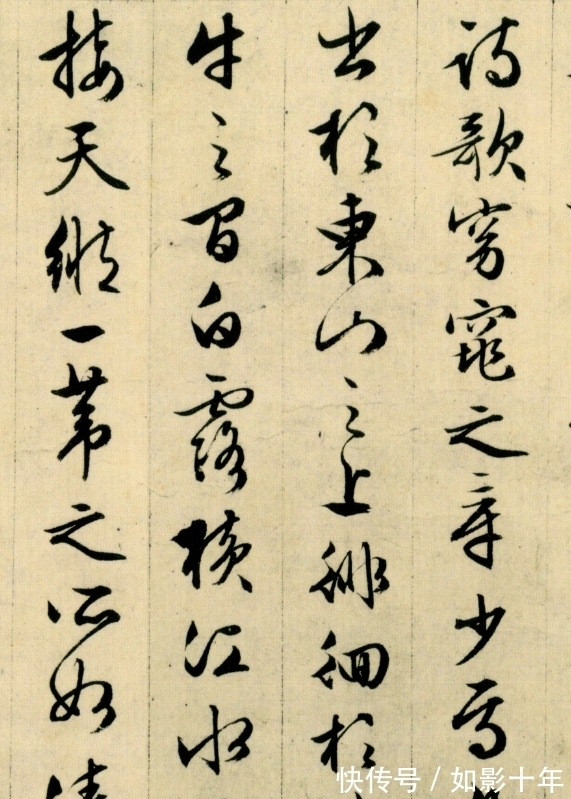 詩歌窈窕之章少焉
出於東山之上徘徊於
牛之間白露橫江水
接天縱一葦之所如
快传号 / 如影十年